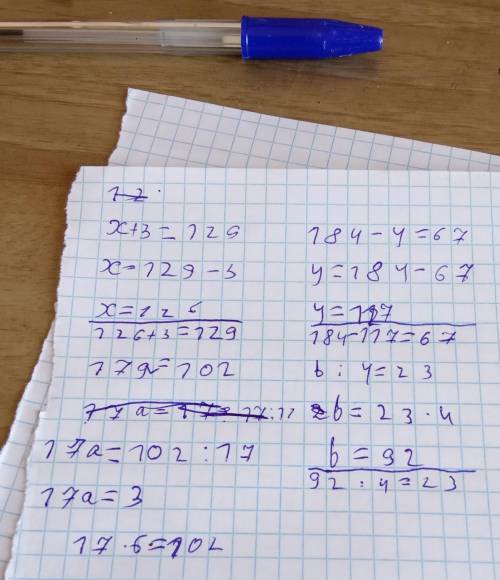 12.
x+3=129
x=129-3
x=126
126+3=129
17a=102
17a=102:17
17a=3
17·6=102
184-y=67
y=184-67
y=117
184-117=67
b:4=23
b=23·4
b=92
92:4=23